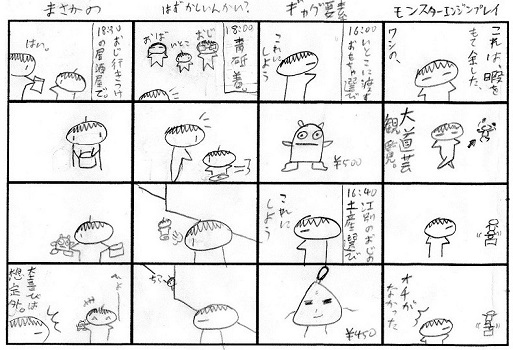 モンスターエンジンプレイ
これは、暇を
もて余した、
ワシの、
大道芸
観覧。
オチが
なかった
ギャグ要素
16:00
いとこに渡す
おもちゃ選び
これに
しよう
¥500
16:40
江別のおじの
土産選び
これに
しよう
¥450
はずかしいんかい?
18:00
青砥着。
おじ
いとこ
おば
まさかの
18:30
おじ行きつけ
の居酒屋で。
はい。
大喜びは
想定外。